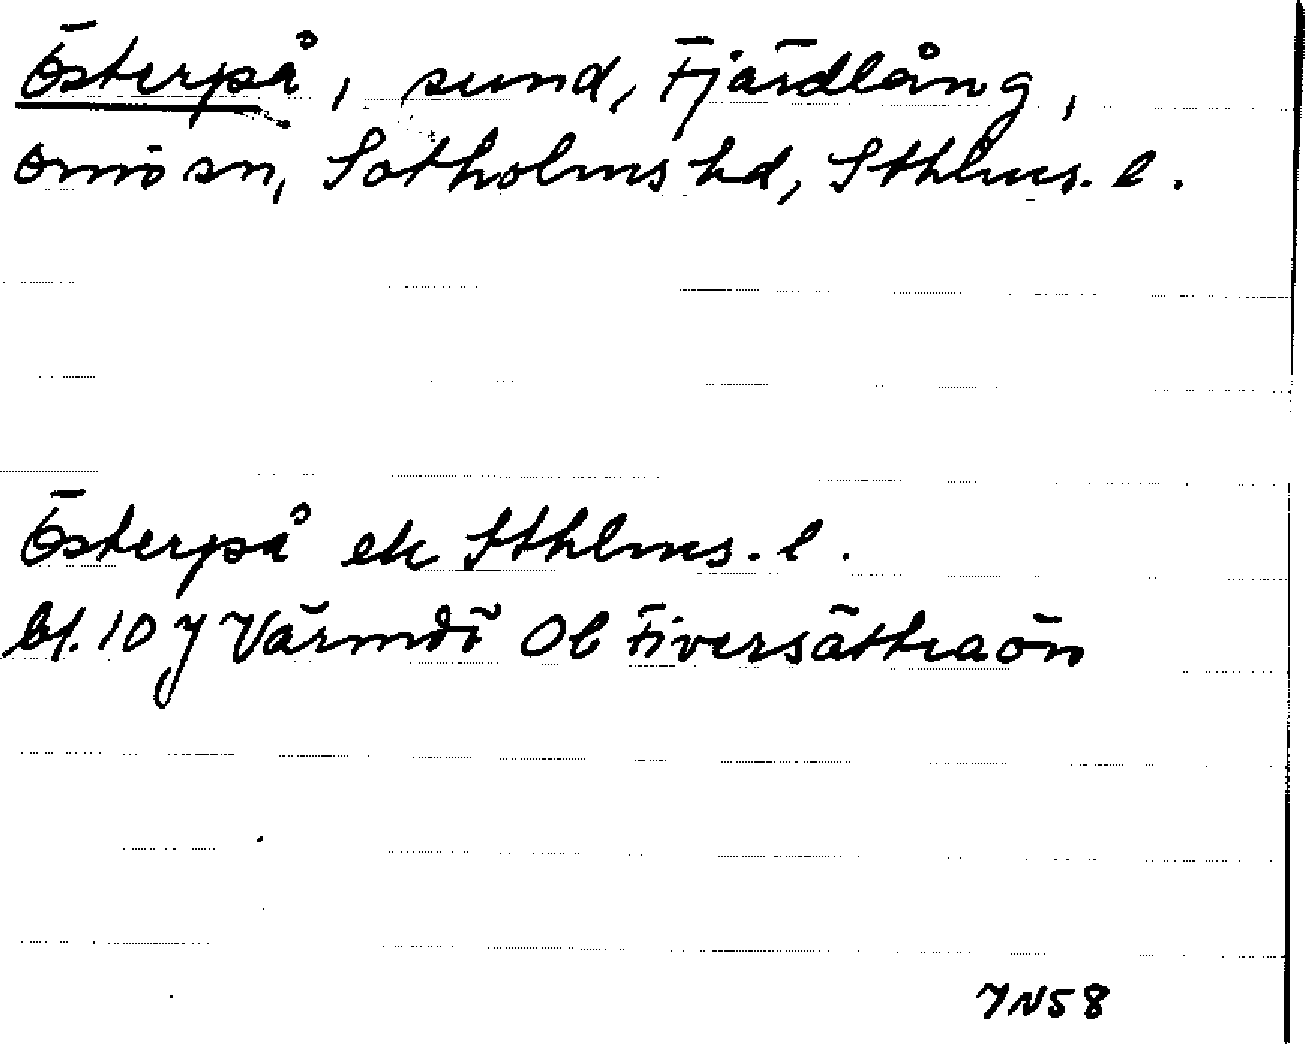 Österpå, sund, Fjärdlång,
Ornö sn, Sotholms hd, Sthlms. l.
Österpå ek Sthlms. l.
bl. 10 J Värmdö Ob Fiversätraön
JN58